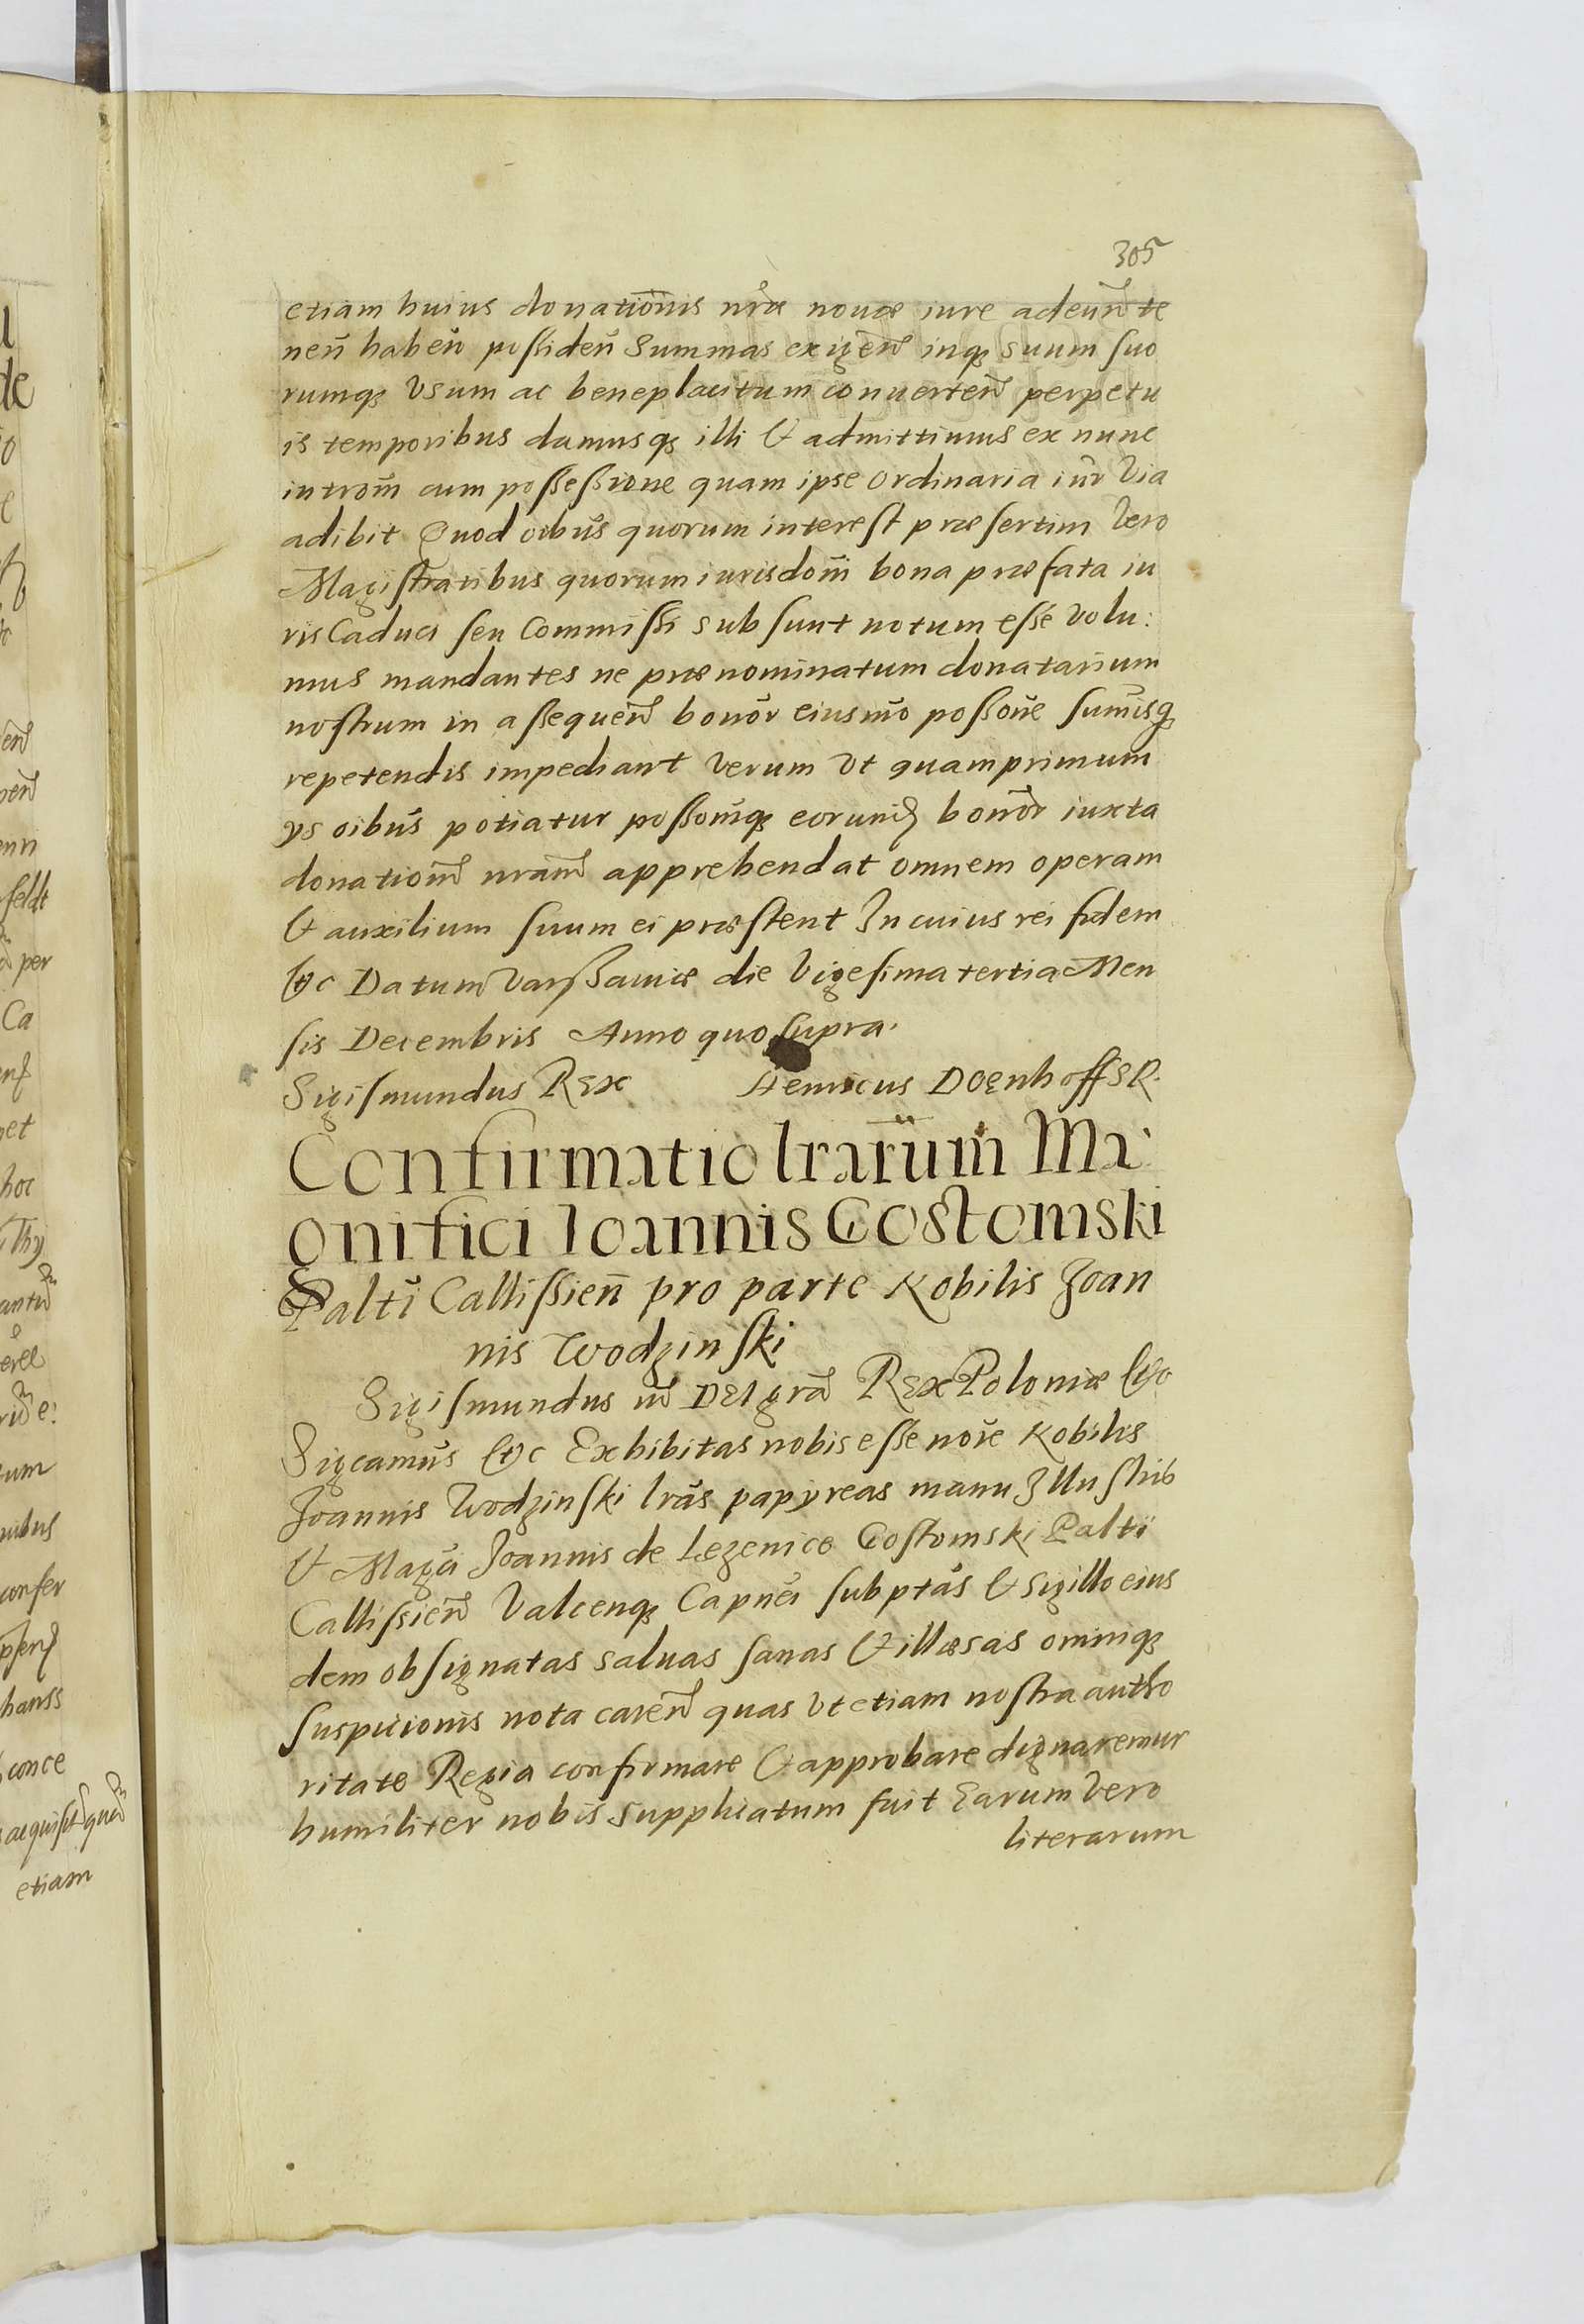 305
etiam huius donationis nrãe nouæ iure adeuñ te
neñ habeñ possideñ Summas exigeñ inq3 suum suo
rumq3 Vsum ac beneplacitum conuerteñ perpetu
is temporibus damusq3 illi & admittimus ex nunc
introm̃ cum possessione quam ipse ordinaria iur̃ Via
adibit Quod oib̃us quorum interest præsertim Vero
Magistratibus quorum iurisdom̃i bona præfata iu
ris Caduci seu Commissi subsunt notum esse Volu:
mus mandantes ne prænominatum donatarium
nostrum in assequeñ bonor̃ eiusmõ possoñe sum̃isq3
repetendis impediant Verum Vt quamprimum
ys oib̃us potiatur possom̃q3 eorund̃ bonor̃ iuxta
donatiom̃ nram̃ apprehendat omnem operam
& auxilium suum ei præstent In cuius rei fidem
&c Datum Varssauiæ die Vigesima tertia Men
sis Decembris Anno quo supra.
Sigismundus Rex Henricus Doenhoff SR.
Confirmatio lrarum̃ Ma:
gnifici Ioannis Gostomski
Palti Callissieñ pro parte Nobilis Joan
nis Wodzinski
Sigismundus iii Dei grã Rex Poloniæ &c
Sigcamus̃ &c Exhibitas nobis esse noĩe Nobilis
Joannis Wodzinski lrãs papyreas manu Illustris
& Magci Joannis de Lezenice Gostomski Palti
Callissieñ Valcenq3 Capnei subptãs & Sigillo eius
dem obsignatas saluas sanas & illæsas omniq3
suspicionis nota careñ quas Vt etiam nostra autho
ritate Regia confirmare & approbare dignaremur
humiliter nobis supplicatum fuit Earum Vero
literarum